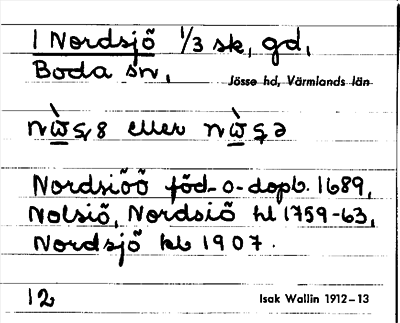 1 Nordsjö 1/3 sk, gd,
Boda sn,
Jösse hd, Värmlands län
eller
Nordsiöö föd-o-dopb. 1689,
Nolsiö, Nordsiö hl 1759-63,
Nordsjö kb 1907.
12
Isak Wallin 1912-13